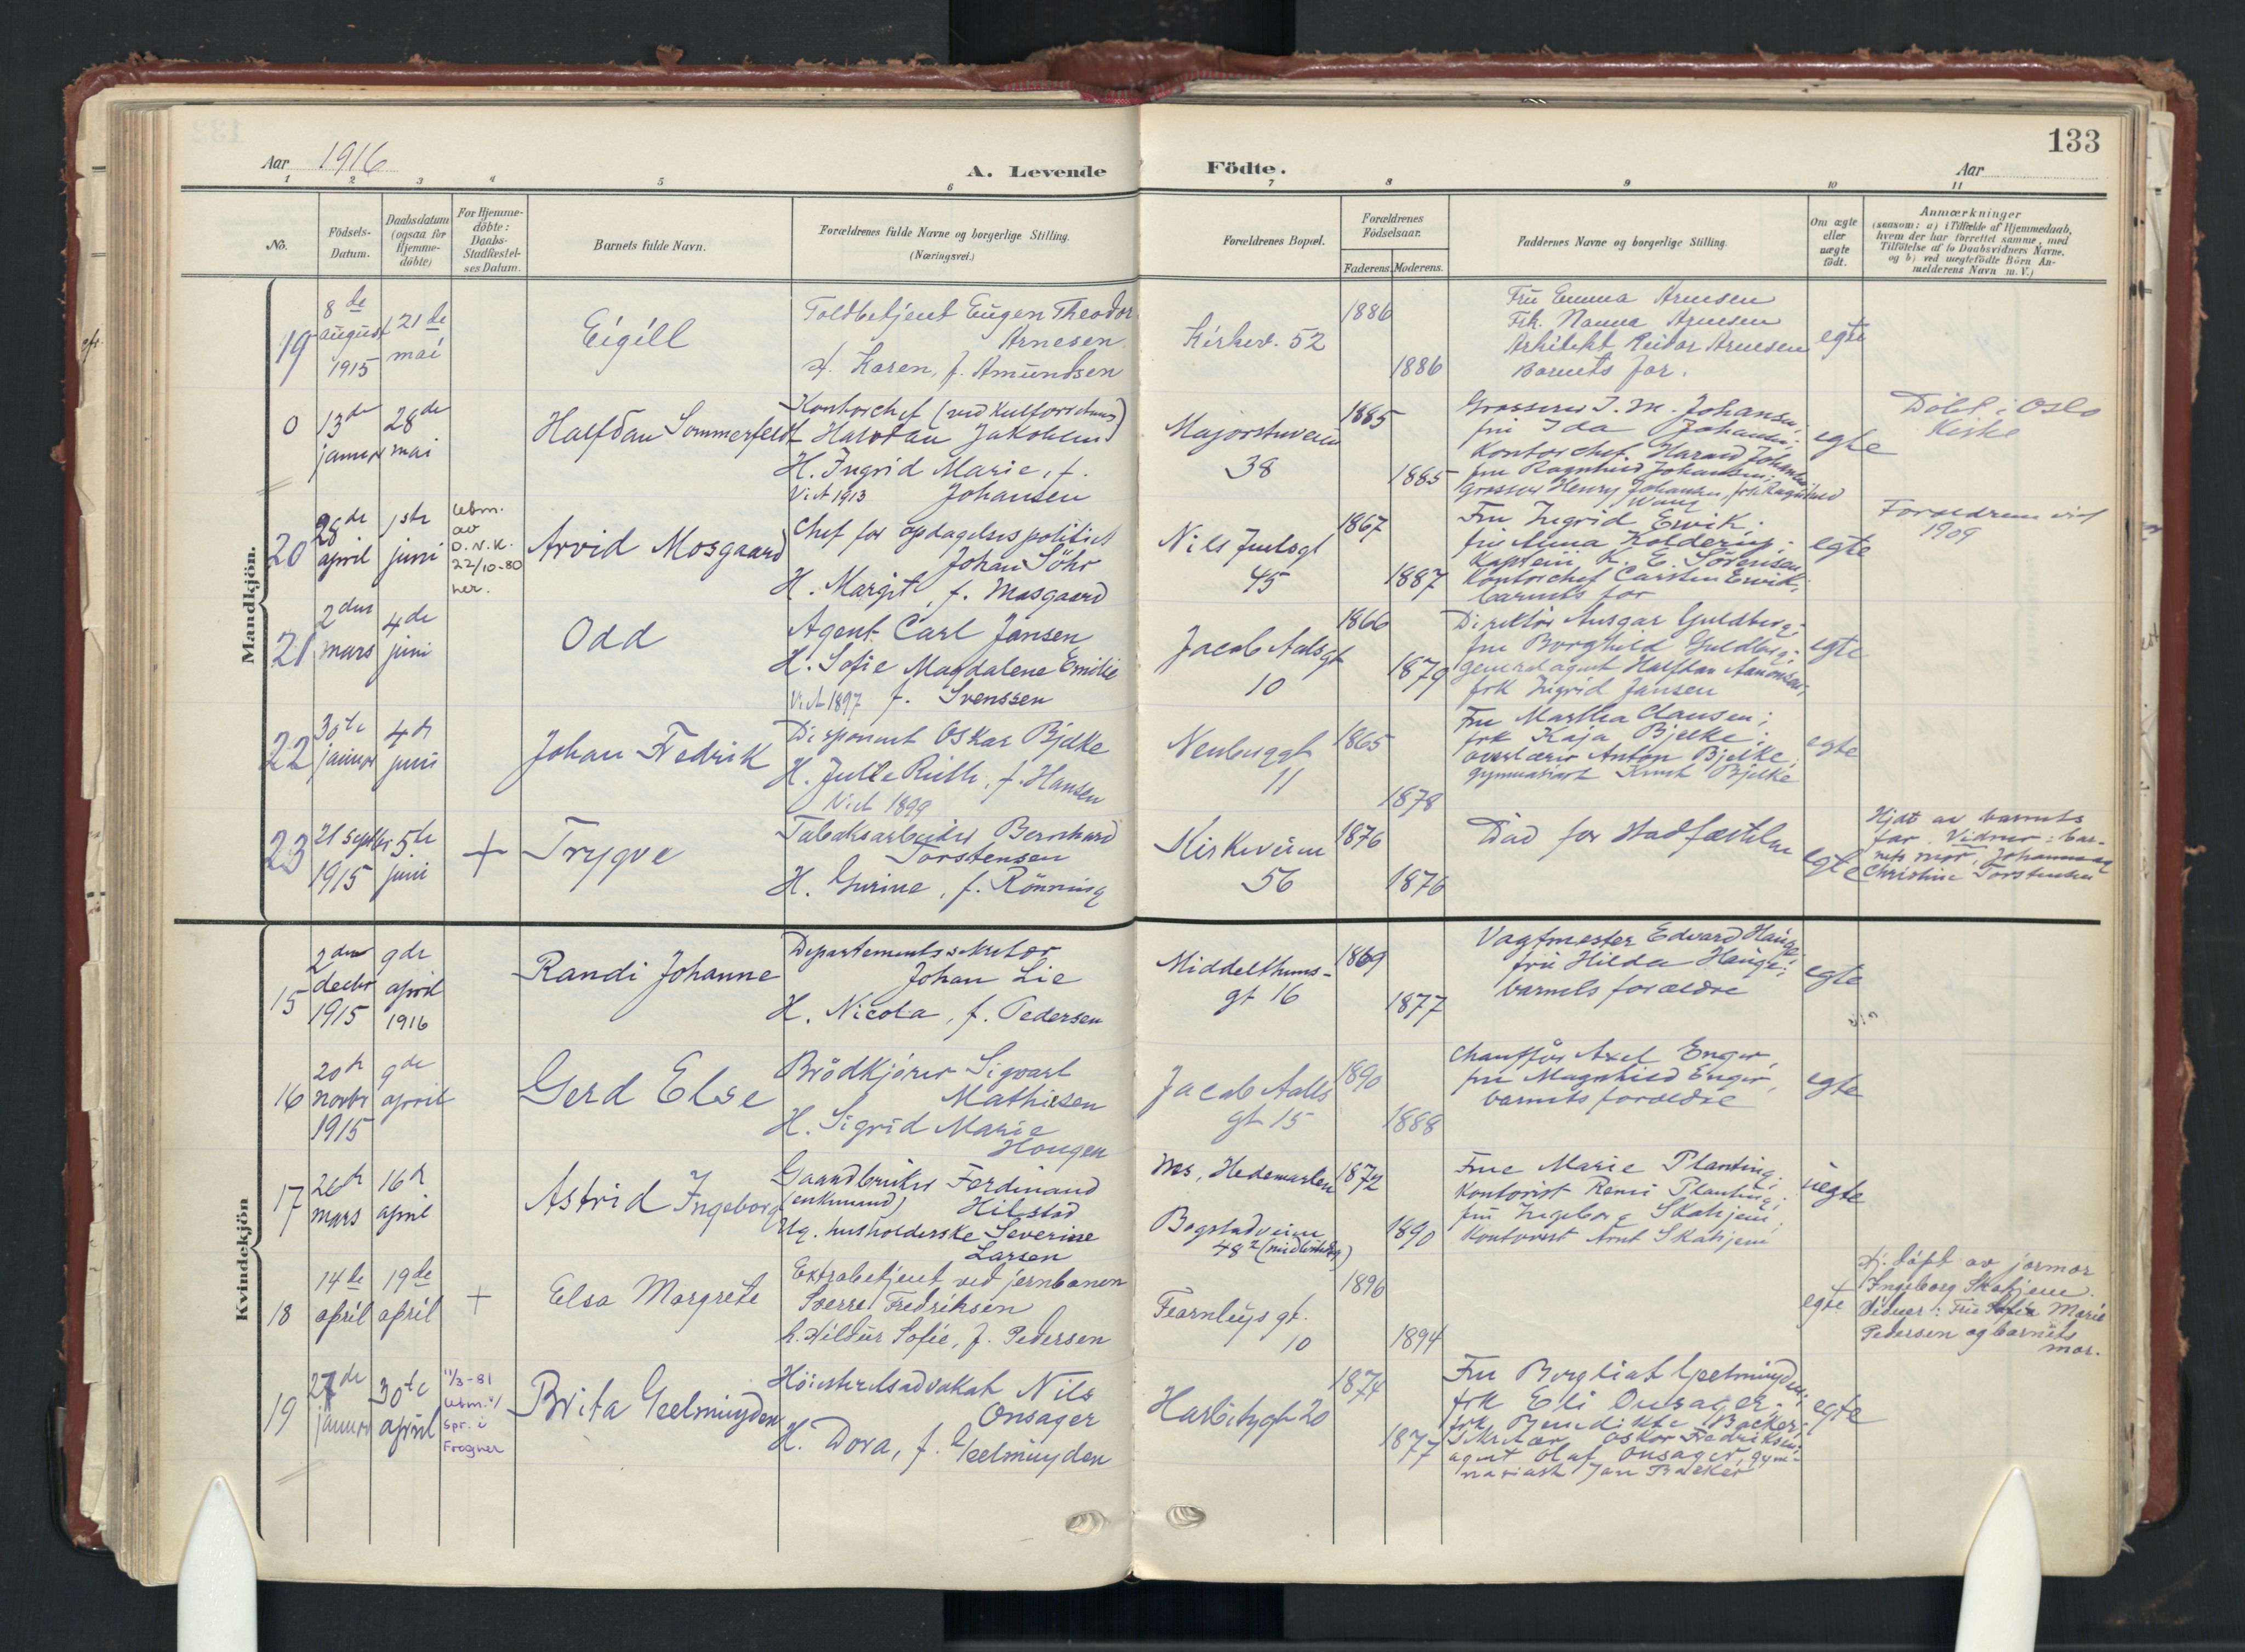 133
Aar 1916
A. Levende Födte.
Aar
1 2 3 4 5 6 7 8 9 10 11
No.
Födsels-
Datum.
Daabsdatum
(ogsaa for
Hjemme-
döbte)
For Hjemme-
döbte:
Daabs-
Stadfæstel-
ses Datum.
Barnets fulde Navn.
Forældrenes fulde Navne og borgerlige Stilling.
(Næringsvei.)
Forældrenes Bopæl.
Forældrenes
Födselsaar.
Faderens. Moderens.
Faddernes Navne og borgerlige Stilling.
Om ægte
eller
uægte
födt.
Anmærkninger
(saasom: a) i Tilfælde af Hjemmedaab,
hvem der har forrettet samme, med
Tilföielse af to Daabsvidners Navne,
og b) ved uægtefödte Börn An-
melderens Navn m. V.)
Mandkjön.
19
8de
august
1915
21de
mai
Eigill
Toldbetjent Eugen Theodor
Arnesen
H. Karen, f. Amundsen
Kirkev. 52
1886
1886
Fru Emma Arnesen
Frk. Nanna Arnesen
Arkitekt Reidar Arnesen
Barnets far.
egte
0
13de
januar
28de
mai
Halfdan Sommerfeldt
Kontorchef
Jakobsen
H. Ingrid Marie, f.
Viet 1913 Johansen
Majorstuveien
38
1885
1885
Grosserer J. M. Johansen;
fru Ida Johansen;
Kontorchef Harald Johansen
fru Ragnhild Johansen;
Grosserer Henry Johansen
egte
Döbt i Oslo
Kirke
20
28de
april
1ste
juni
Ubm.
av
D.N.K.
22/10-80
her.
Arvid Mosgaard
Chef for opdagelsespolitiet
Johan Söhr
H. Margit, f. Mosgaard
Nils Juelsgt
45
1867
1887
Fru Ingrid Ervik;
fru Anna Kolderup;
Kaptein K. E. Sörensen
Kontorchef Carsten Ervik;
barnets far
egte
Forældrene viet
1909
21
2den
mars
4de
juni
Odd
Agent Carl Jansen
H. Sofie Magdalene Emilie
Viet 1897 f. Svenssen
Jacob Aalsgt
10
1866
1879
Direktör Ansgar Guldberg;
fru Borghild Guldberg;
generalagent Halfdan
frk Ingrid Jansen
egte
22
30te
januar
4de
juni
Johan Fredrik
Disponent Oskar Bjelke
H. Julle Ruth, f. Hansen
Viet 1899
Neubuggt
11
1865
1878
Fru Martha Clausen;
frk Kaja Bjelke;
overlærer Anton Bjelke;
gymnasiast Knut Bjelke
egte
23
21 septbr
1915
5te
juni
+
Trygve
Tabaksarbeider Bernhard
Torstensen
H. Gurine, f. Rönning
Kirkeveien
56
1876
1876
Död for stadfæstelsen
egte
Hjdt av barnets
far. Vidner: bar-
nets mor, Johanna og
Christine Torstensen
Kvindekjön
15
2den
decbr
1915
9de
april
1916
Randi Johanne
Departementssekretær
Johan Lie
H. Nicola, f. Pedersen
Middelthuns-
gt 16
1869
1877
Vagtmester Edvard Hauge;
fru Hilda Hauge;
barnets forældre
egte
16
20de
novbr
1915
9de
april
Gerd Else
Brödkjörer Sigvart
Mathisen
H. Sigrid Marie
Hougen
Jacob Aalls
gt 15
1890
1888
Chaufför Axel Enger,
fru Magnhild Enger,
barnets forældre
egte
17
26de
mars
16de
april
Astrid Ingeborg
Gaardbruker Ferdinand
(enkemand) Hilstad
Ug. husholderske Severine
Larsen
Nes, Hedemarken
Bogstadveien
48² (midlertidig)
1872
1890
Frue Marie Planting;
Kontorist Remi Planting;
fru Ingeborg Skatjem;
Kontorist Arnt Skatjem
uegte
18
14de
april
19de
april
+
Elsa Margrete
Extrabetjent ved jernbanen
Sverre Fredriksen
h. Hildur Sofie, f. Pedersen
Fearnleys gt.
10
1896
1894
egte
Hj. döpt av jormor
Ingeborg Skatjem.
Vidner: Fru Sofia Marie
Pedersen og barnets
mor.
19
27de
januar
30te
april
11/3-81
Ubm. t/
spr. i
Frogner
Brita Geelmuyden
Höiesteretsadvokat Nils
Onsager
H. Dora, f. Geelmuyden
Harbitzgt 20
1874
1877
Fru Bergliot Geelmuyden;
frk Eli Onsager;
frk Benedikte Backer;
Sekretær Oskar Fredriksen;
agent Olaf Onsager, gym-
nasiast Jan Backer
egte